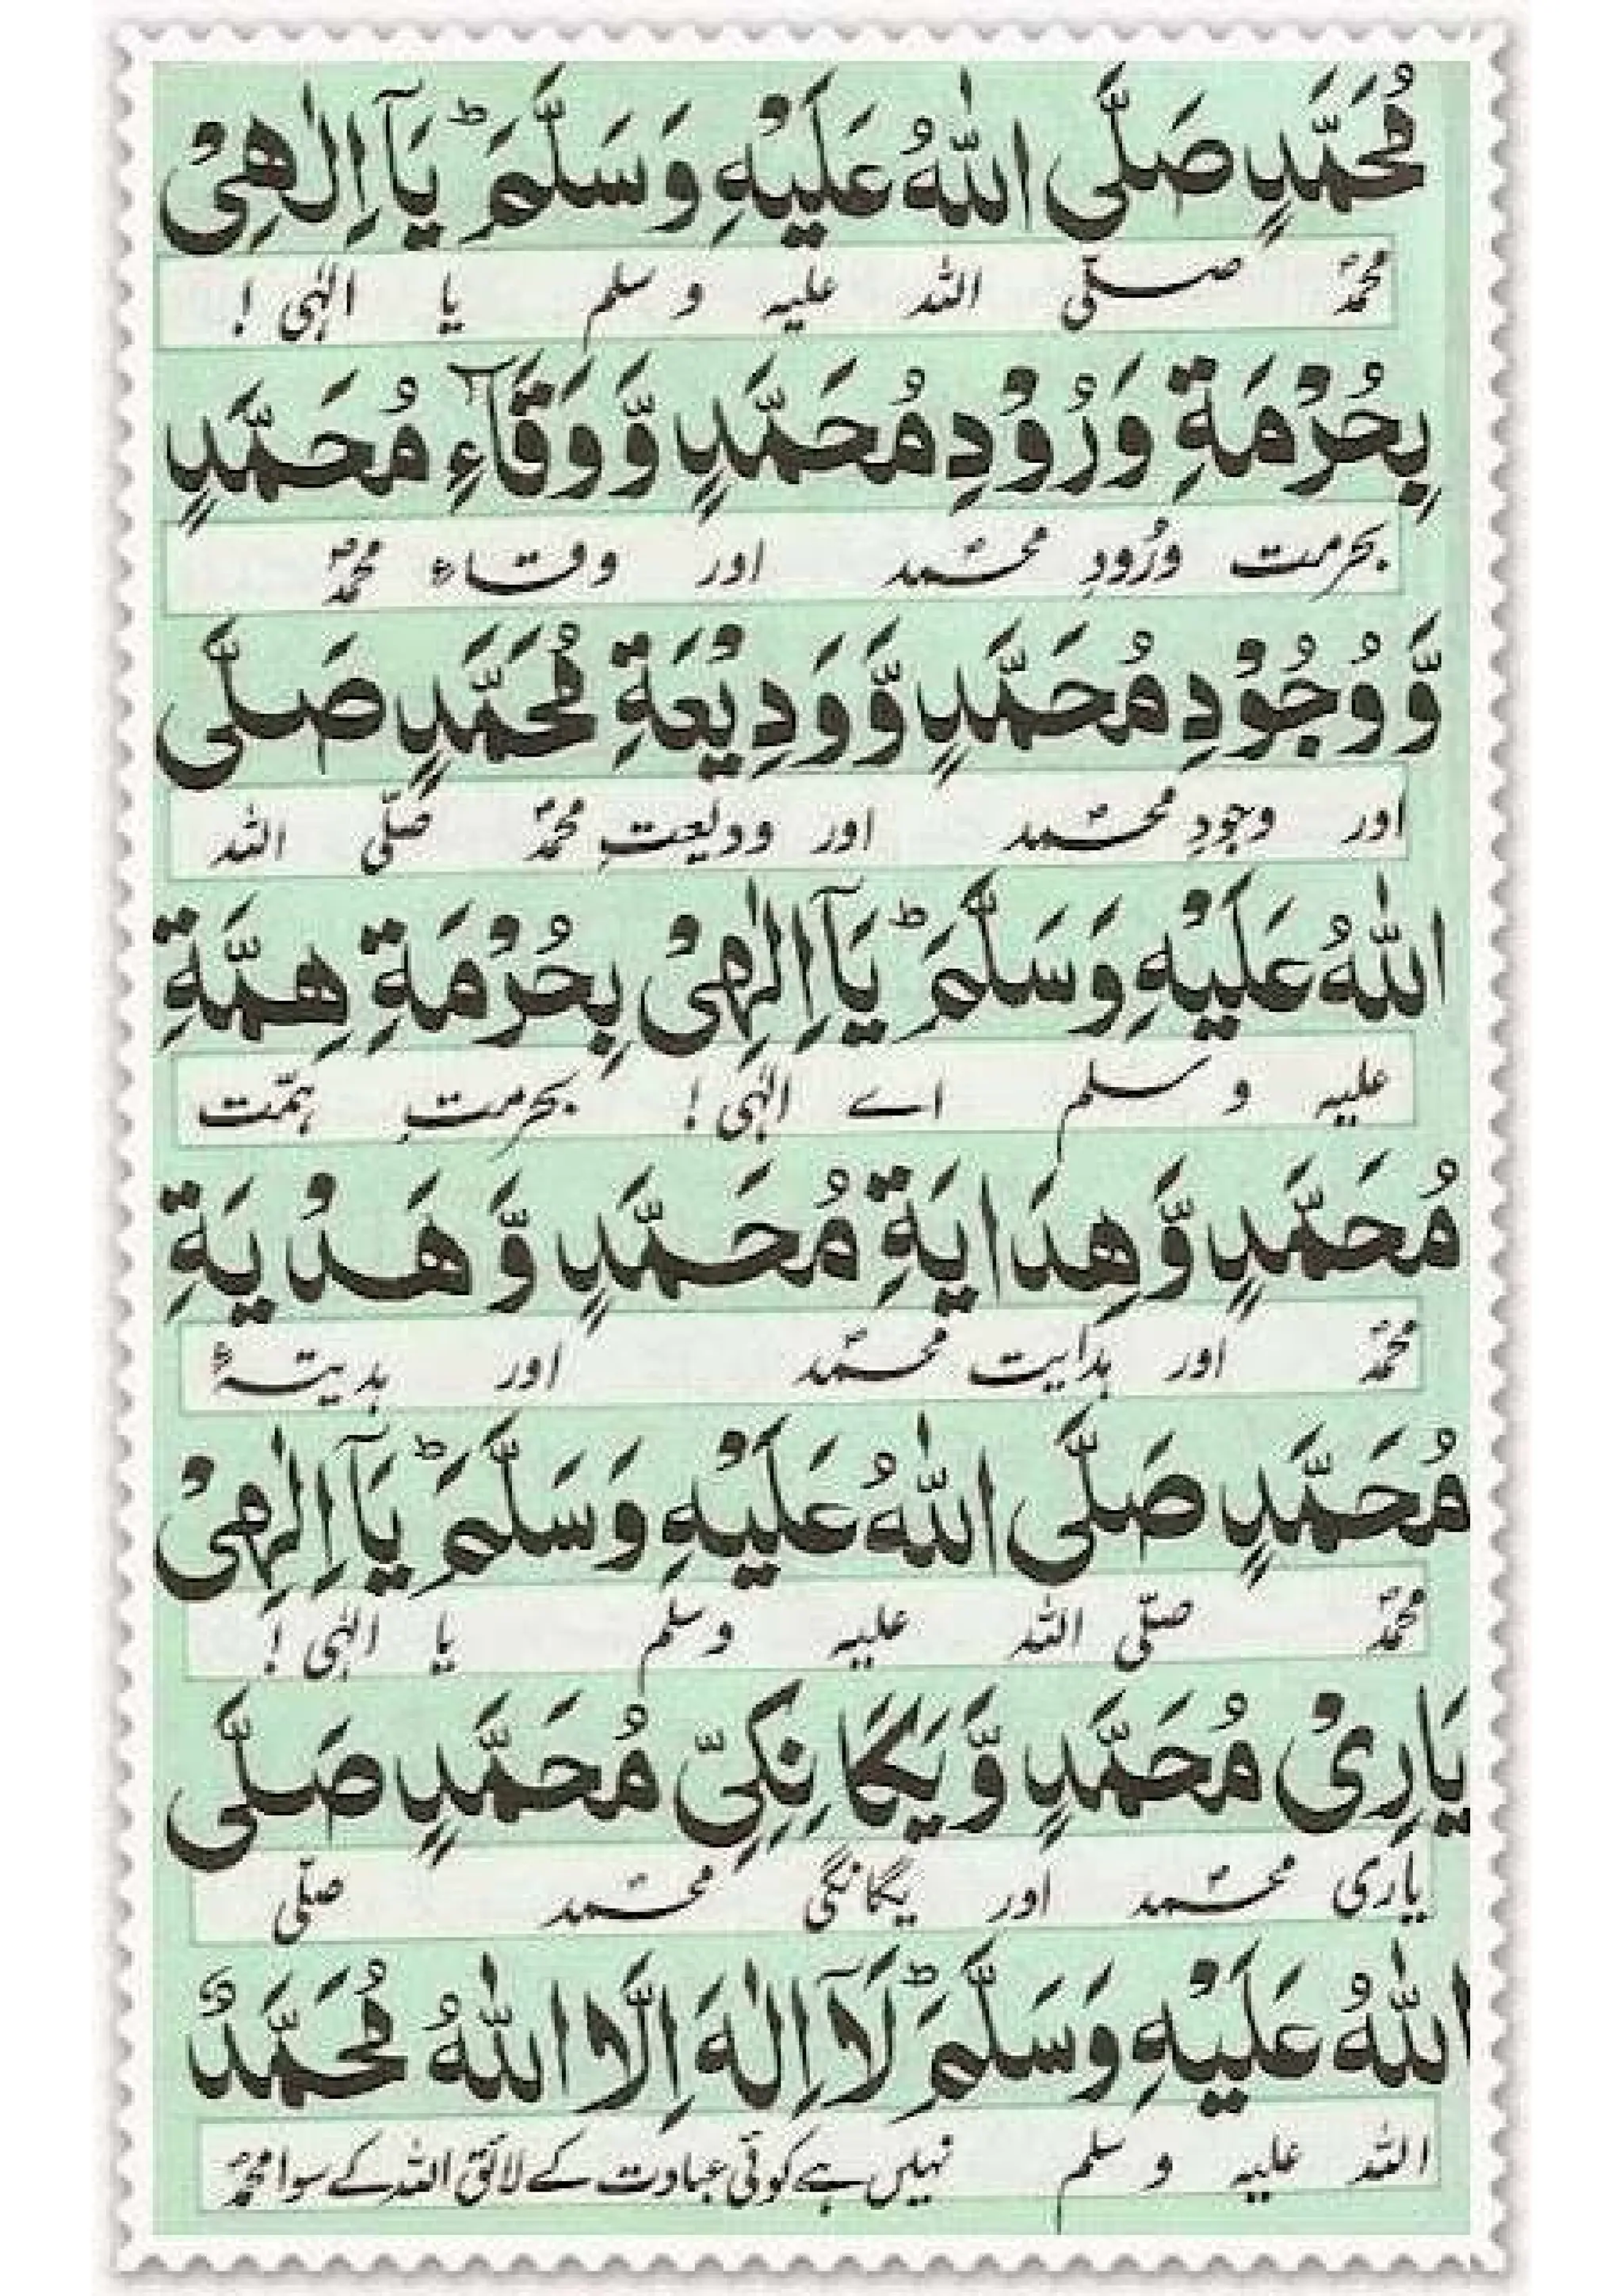 مُحَمَّدٍ صَلَّى اللّٰهُ عَلَيْهِ وَسَلَّمَ ؕ يَآ اِلٰهِىْ
محمدؐ صلّی اللہ علیہ وسلم یا الٰہی !
بِحُرْمَةِ وَرُوْدِ مُحَمَّدٍ وَّوَقَآءِ مُحَمَّدٍ
بحرمت ورُودِ محمدؐ اور وقاءِ محمدؐ
وَّوُجُوْدِ مُحَمَّدٍ وَّوَدِيْعَةِ مُحَمَّدٍ صَلَّى
اور وجودِ محمدؐ اور ودیعتِ محمدؐ صلّی اللہ
اللّٰهُ عَلَيْهِ وَسَلَّمَ ؕ يَآ اِلٰهِىْ بِحُرْمَةِ هِمَّةِ
علیہ وسلم اے الٰہی ! بحرمتِ ہمّت
مُحَمَّدٍ وَّهِدَايَةِ مُحَمَّدٍ وَّهَدْيَةِ
محمدؐ اور ہدایت محمدؐ اور ہدیتہٴ
مُحَمَّدٍ صَلَّى اللّٰهُ عَلَيْهِ وَسَلَّمَ ؕ يَآ اِلٰهِىْ
محمدؐ صلّی اللہ علیہ وسلم یا الٰہی !
يَارِىْ مُحَمَّدٍ وَّيَكَانِكِىِّ مُحَمَّدٍ صَلَّى
یاری محمدؐ اور یگانگی محمدؐ صلّی
اللّٰهُ عَلَيْهِ وَسَلَّمَ ؕ لَآ اِلٰهَ اِلَّا اللّٰهُ مُحَمَّدٌ
اللہ علیہ وسلم نہیں ہے کوئی عبادت کے لائق اللہ کے سوا محمدؐ